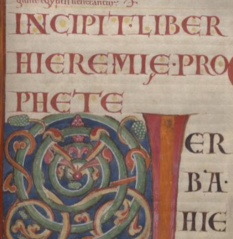 INCIPIT·LIBER
HIEREMIE·PRO
PHETE
VER
BA·
HIE